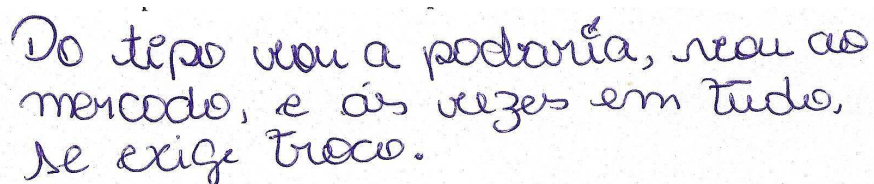 Do tipo vou a padaria, vou ao
mercado, e ás vezes em tudo,
se exige troco.